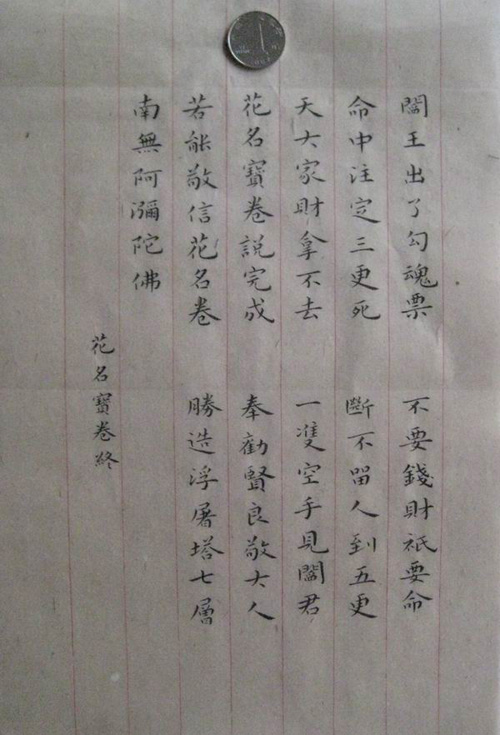 閻王出了勾魂票 不要錢財祇要命
命中注定三更死 斷不留人到五更
天大家財拿不去 一雙空手見閻君
花名寶卷説完成 奉勸賢良敬大人
若能敬信花名卷 勝造浮屠塔七層
南無阿彌陀佛
花名寶卷終